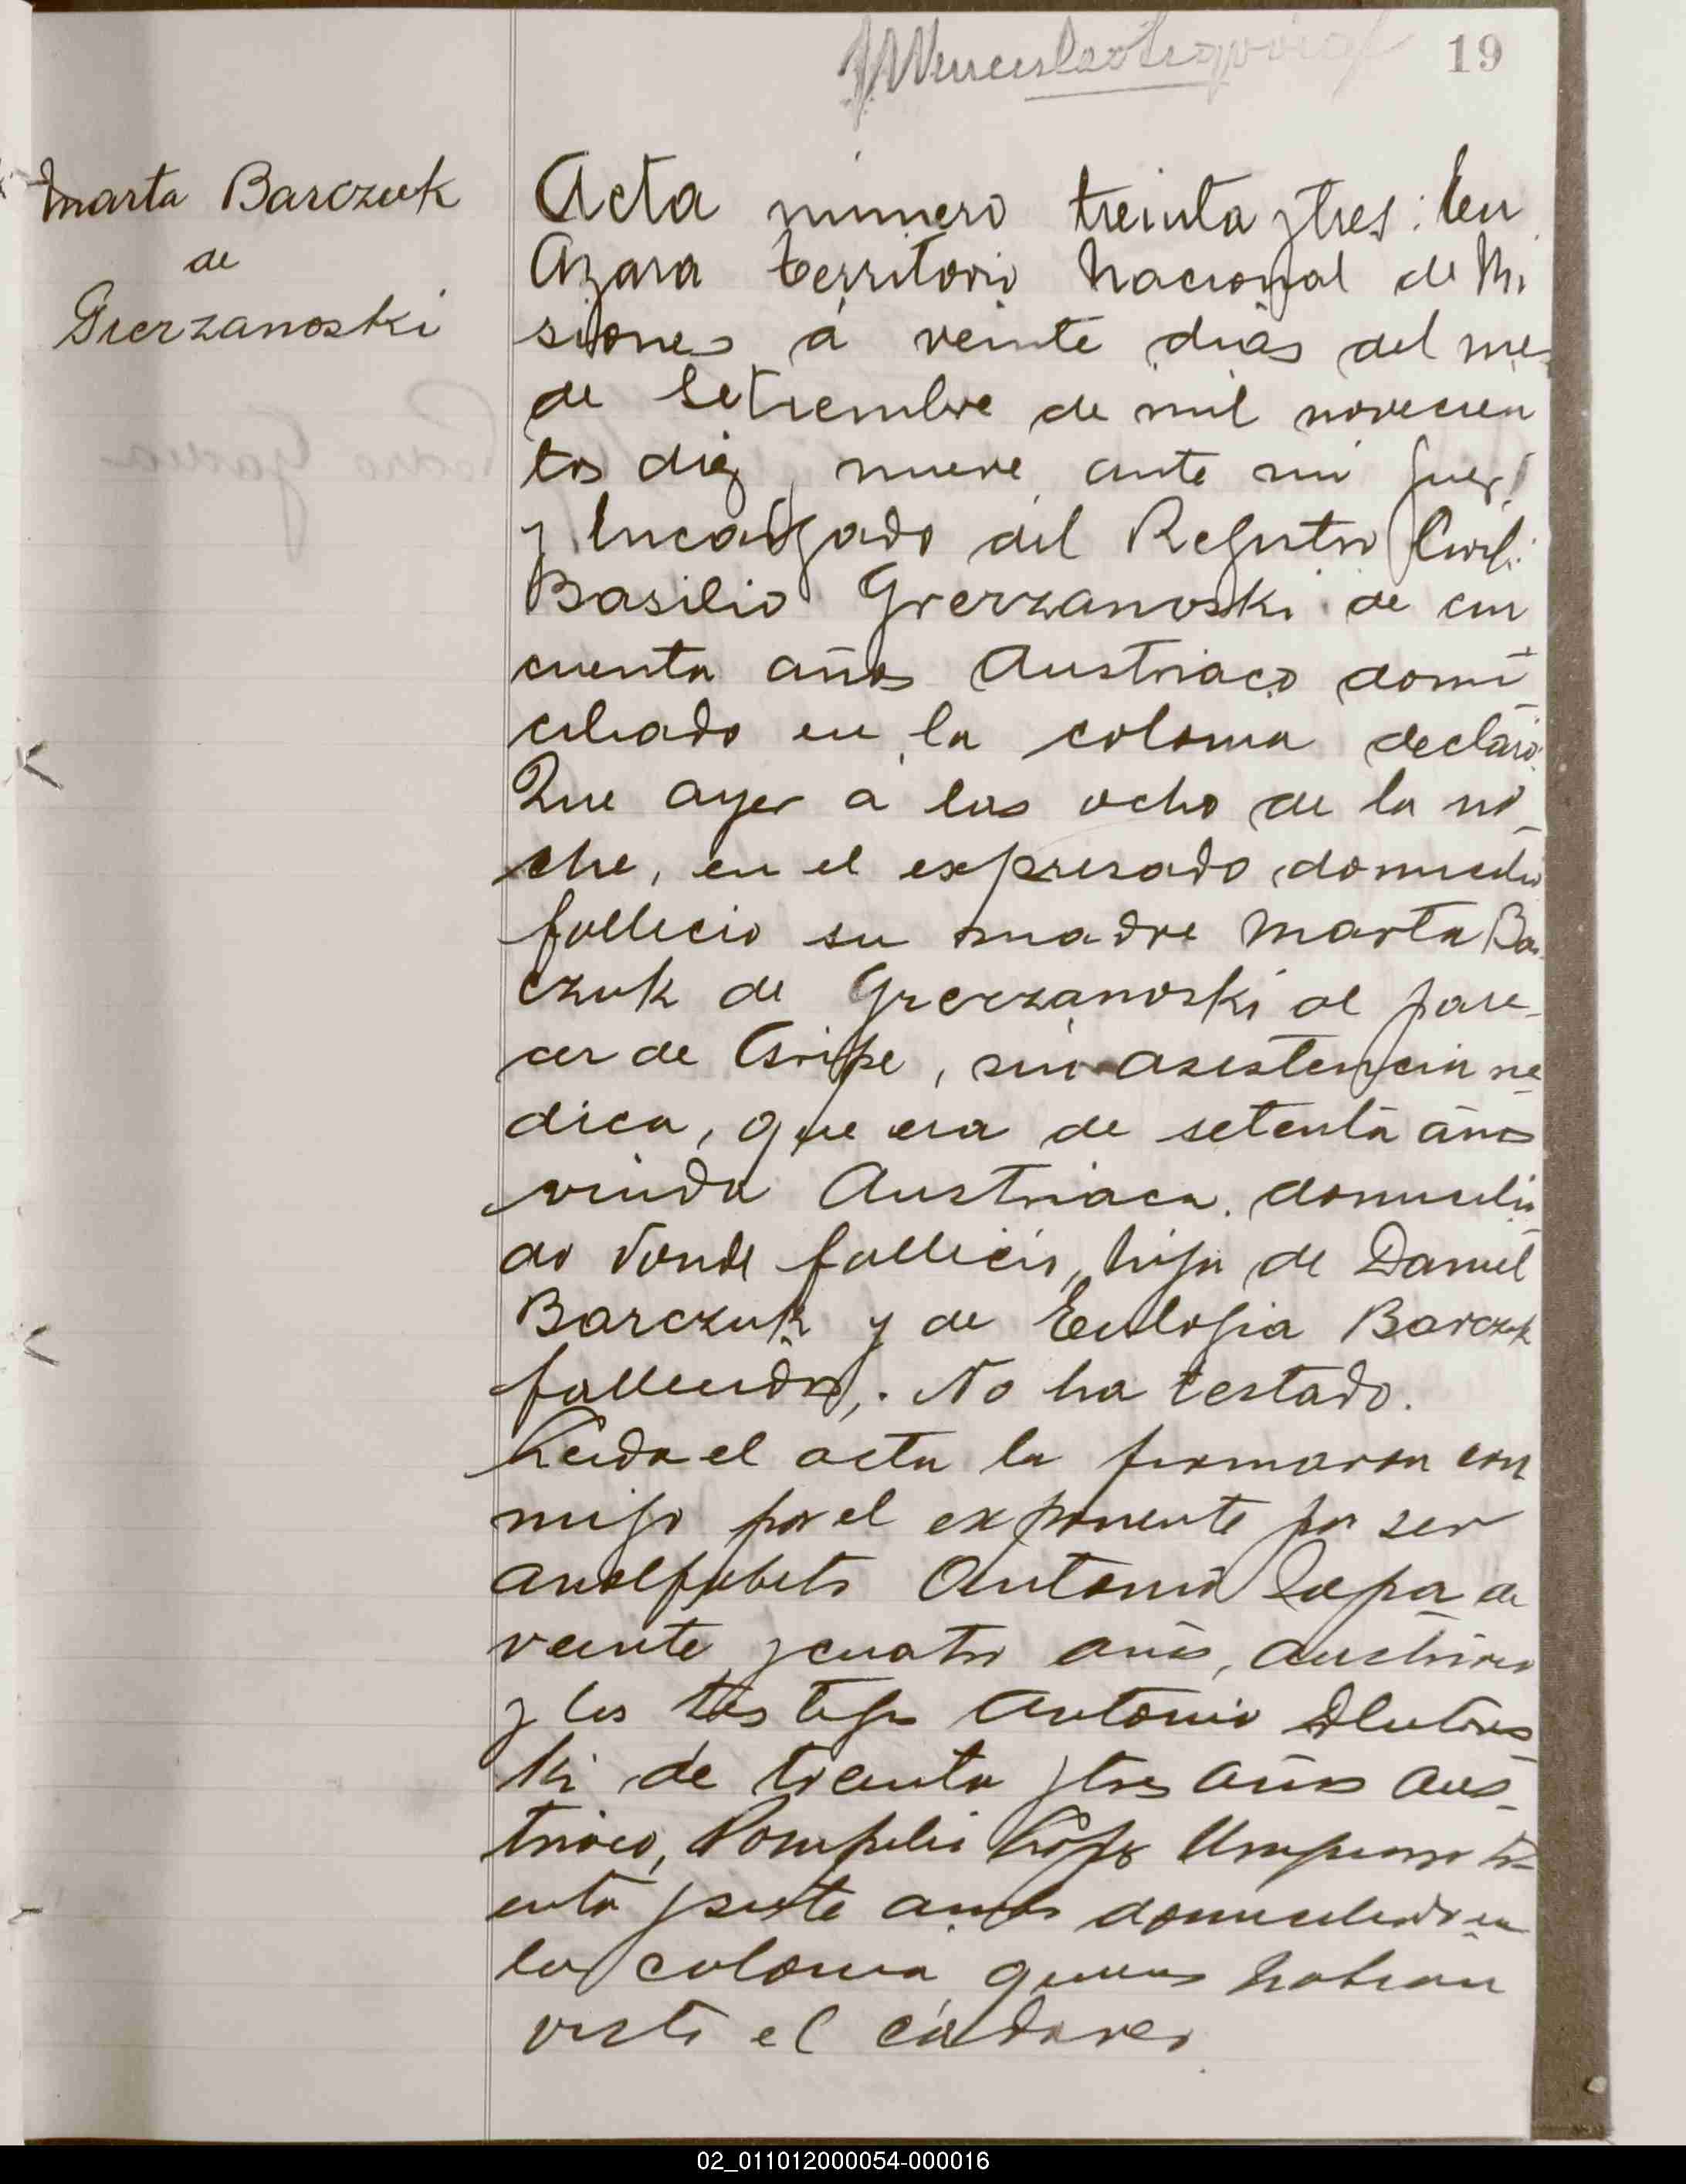 19
Marta Barczuk
de
Grerzanoski
Acta número treinta y tres: En
Azara territorio Nacional de Mi
siones á veinte dias del mes
de Setiembre de mil novecien
tos diez y nueve ante mi Juez
y Encargado del Registro Civil:
Basilio Grerzanoski de cin
cuenta años Austriaco domi
ciliado en la colonia declaró:
Que ayer a las ocho de la no
che, en el expresado domicilio
fallecio su madre Marta Bar
czuk de Grerzanoski al pare
cer de Gripe, sin asistencia me
dica, que era de setenta años
viuda Austriaca, domicilia
da donde fallecio, hija de Daniel
Barczuk y de Eulogia Barczuk
fallecidos,. No ha testado.
Leida el acta la firmaron con
migo por el exponente por ser
analfabeto Antonio Sapa de
veinte y cuatro años, austriaco
y los testigos Antonio Dlutows
ki de treinta y tres años aus
triaco, Pompilio López Uruguayo tr
enta y siete años domiciliado en
la colonia quienes habian
visto el cadaver
02_011012000054-000016